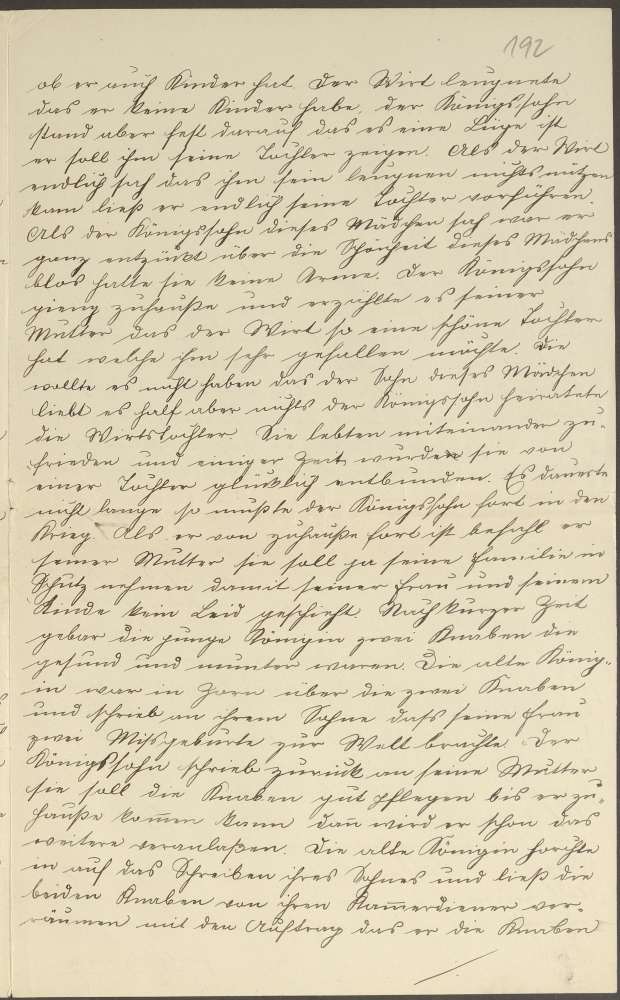 192
ob er auch Kinder hat. Der Wirt leugnete
das er keine Kinder habe, der Königssohn
stand aber fest darauf das es eine Lüge ist
er soll ihm seine Tochter zeigen. Als der Wirt
endlich sah das ihm sein leugnen nichts nützen
kann ließ er endlich seine Tochter vorführen.
Als der Königssohn dieses Mädchen sah war er
ganz entzückt über die Schönheit dieses Mädchens
blos hatte sie keine Arme. Der Königssohn
gieng zuhauße und erzählte es seiner
Mutter das der Wirt so eine schöne Tochter
hat welche ihm sehr gefallen möchte. Die
wollte es nicht haben das der Sohn dieses Mädchen
liebt es half aber nichts der Königssohn heiratete
die Wirtstochter. Sie lebten miteinander zu-
frieden und einiger Zeit wurden sie von
einer Tochter glücklich entbunden. Es dauerte
nicht lange so mußte der Königssohn fort in den
Krieg. Als er von zuhauße fort ist befahl er
seiner Mutter sie soll ja seine Familie in
Schutz nehmen damit seiner Frau und seinem
Kinde kein Leid geschieht. Nach kurzer Zeit
gebar die junge Königin zwei Knaben die
gesund und munter waren. Die alte König-
in war in Zorn über die zwei Knaben
und schrieb an ihrem Sohne dass seine Frau
zwei Missgeburte zur Welt brachte. Der
Königssohn schrieb zurück an seine Mutter
sie soll die Knaben gut pflegen bis er zu-
hauße kom̄en kann dan̄ wird er schon das
weitere veranlaßen. Die alte Königin horchte
in auf das Schreiben ihres Sohnes und ließ die
beiden Knaben von ihren Kam̄erdiener ver-
räumen mit den Auftrag das er die Knaben